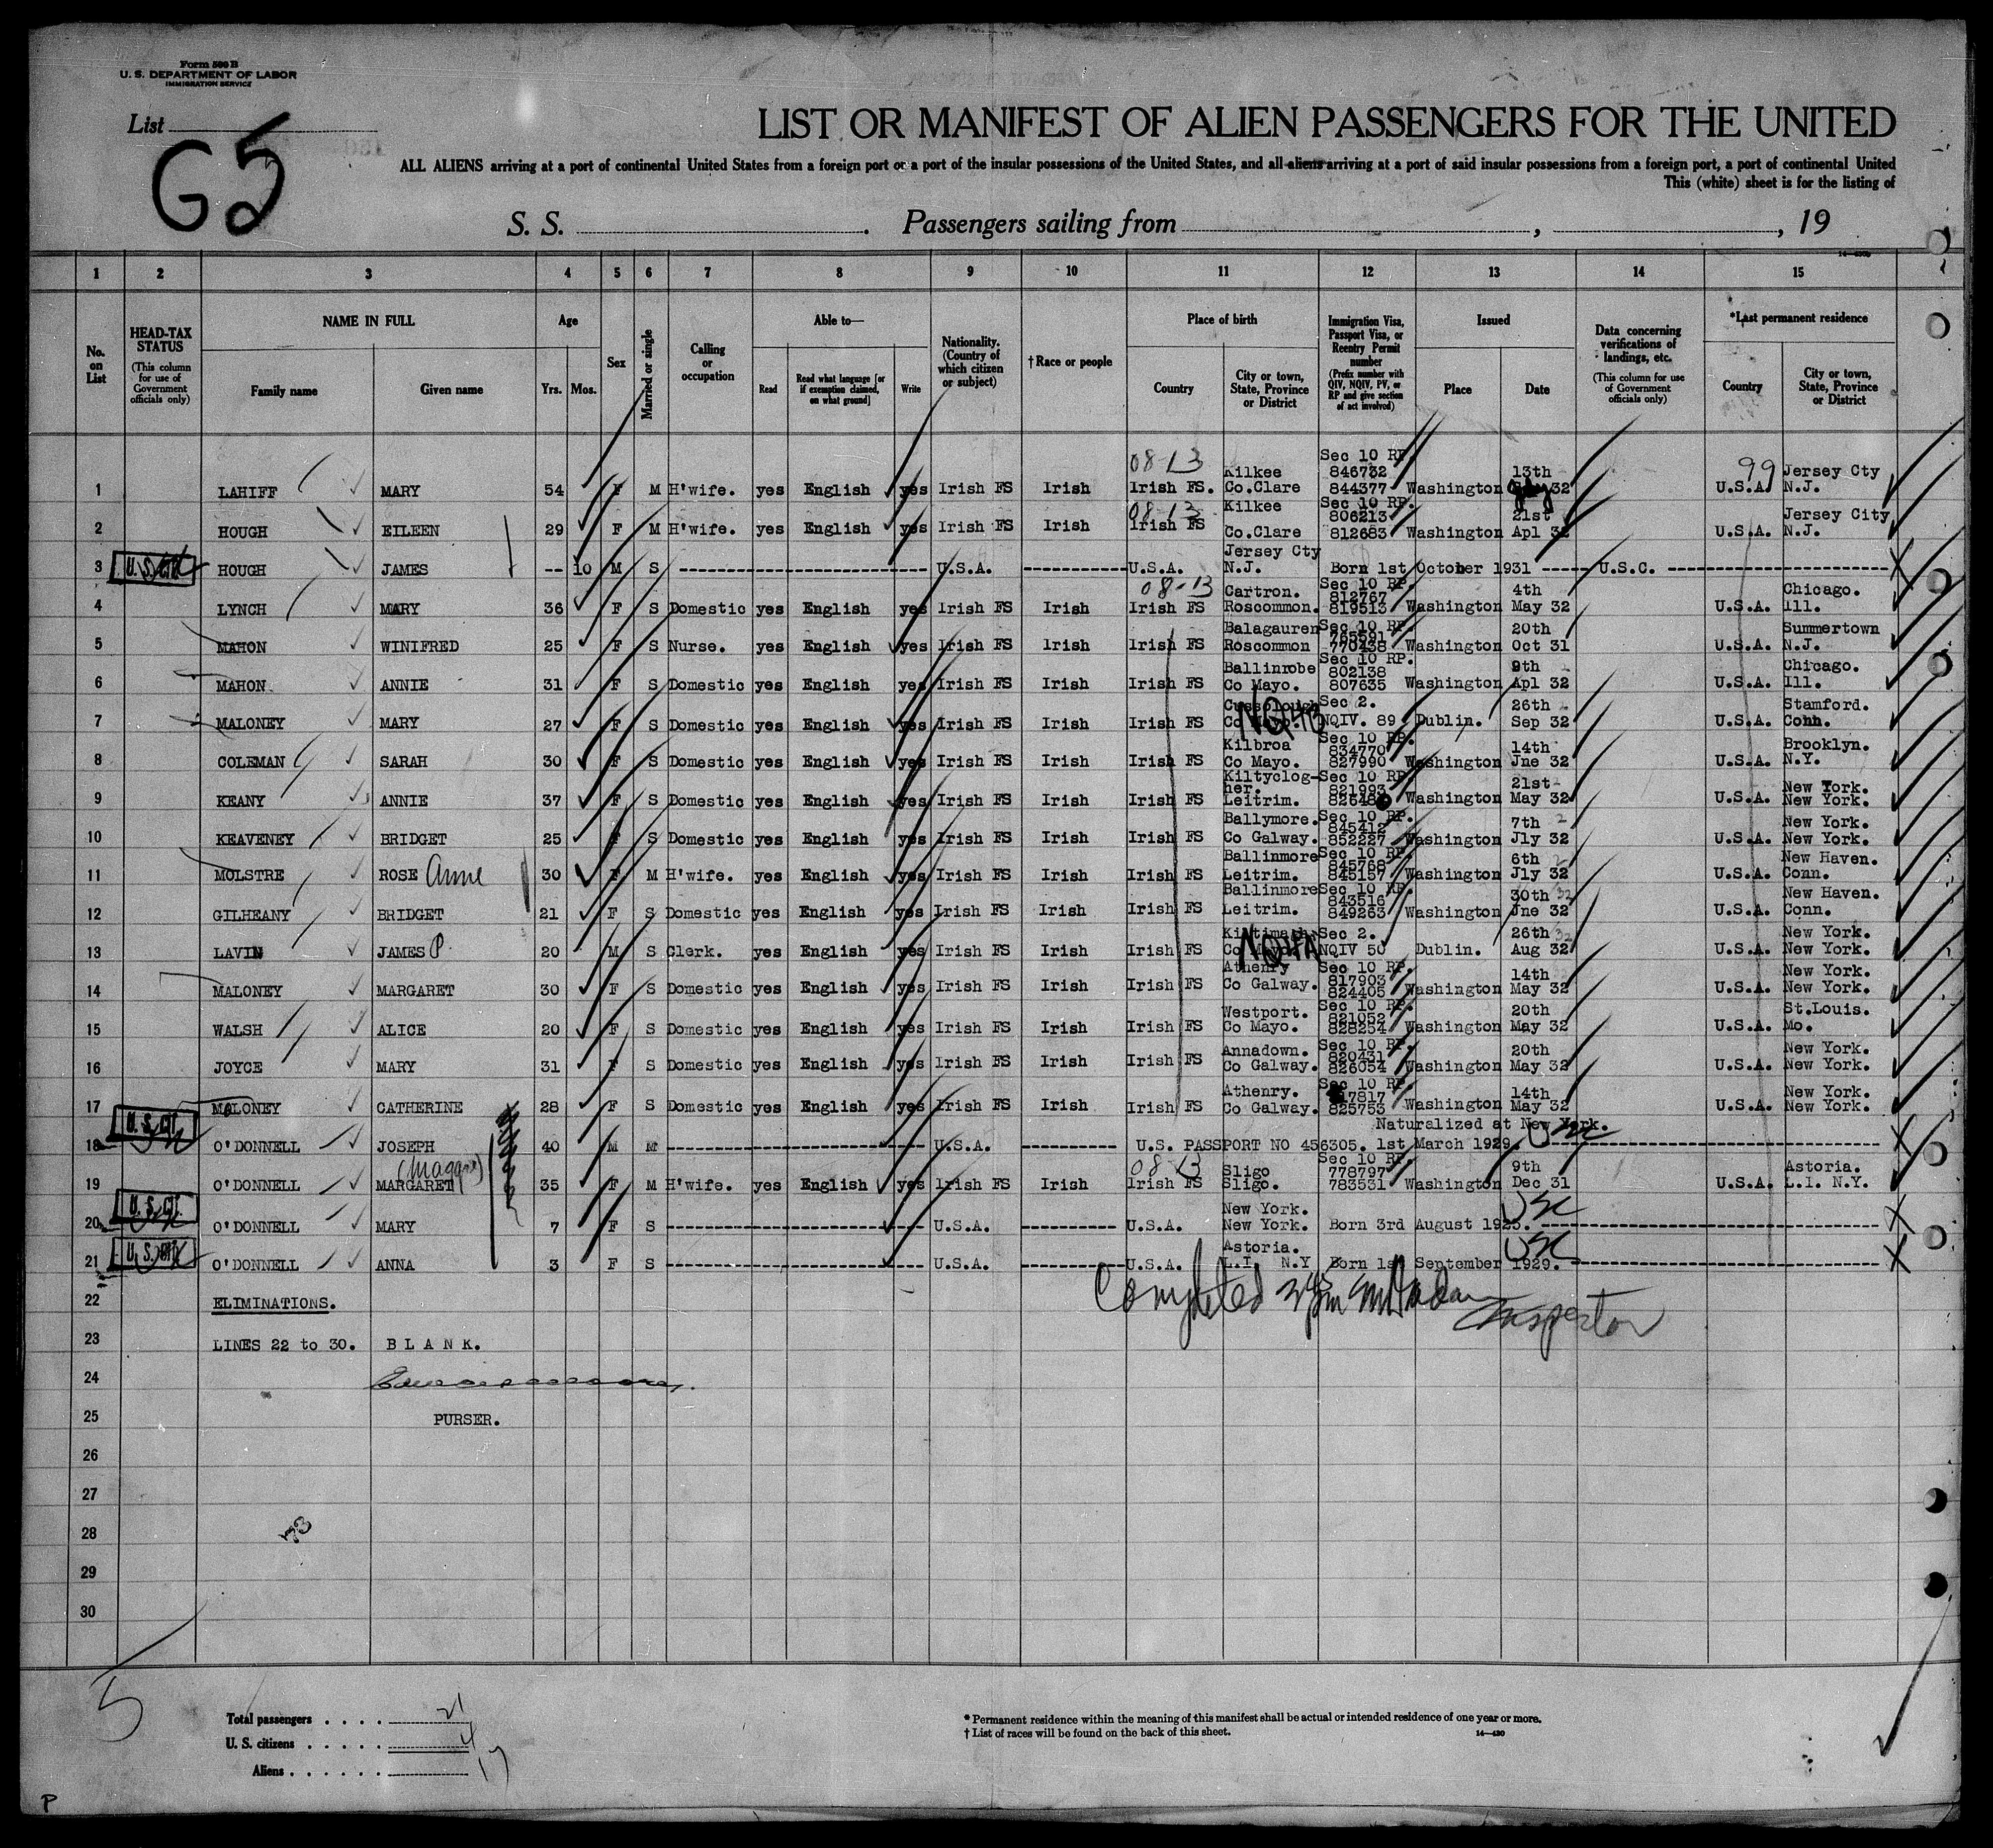 Form 500 B
U. S. DEPARTMENT OF LABOR
IMMIGRATION SERVICE
List
G5
LIST OR MANIFEST OF ALIEN PASSENGERS FOR THE UNITED
ALL ALIENS arriving at a port of continental United States from a foreign port or a port of the insular possessions of the United States, and all aliens arriving at a port of said insular possessions from a foreign port, a port of continental United
This (white) sheet is for the listing of
S. S. . Passengers sailing from , , 19
1 2 3 4 5 6 7 8 9 10 11 12 13 14 15
No. on List
HEAD-TAX STATUS (This column for use of Government officials only)
NAME IN FULL Family name Given name
Age Yrs. Mos.
Sex
Married or single
Calling or occupation
Able to— Read Read what language [or if exemption claimed, on what ground] Write
Nationality. (Country of which citizen or subject)
† Race or people
Place of birth Country City or town, State, Province or District
Immigration Visa, Passport Visa, or Reentry Permit number (Prefix number with QIV, NQIV, PV, or RP and give section of act involved)
Issued Place Date
Data concerning verifications of landings, etc. (This column for use of Government officials only)
*Last permanent residence Country City or town, State, Province or District
1 LAHIFF MARY 54 F M H'wife. yes English yes Irish FS Irish 08-13 Irish FS. Kilkee Co.Clare Sec 10 RP. 846732 844377 Washington 13th July 32 99 U.S.A. Jersey Cty N.J.
2 HOUGH EILEEN 29 F M H'wife. yes English yes Irish FS Irish 08-13 Irish FS Kilkee Co.Clare Sec 10 RP. 806213 812683 Washington 21st Apl 32 U.S.A. Jersey City N.J.
3 U.S. CIT. HOUGH JAMES -- 10 M S U.S.A. U.S.A. Jersey Cty N.J. Born 1st October 1931 U.S.C.
4 LYNCH MARY 36 F S Domestic yes English yes Irish FS Irish 08-13 Irish FS Cartron. Roscommon. Sec 10 RP. 812767 819513 Washington 4th May 32 U.S.A. Chicago. Ill.
5 MAHON WINIFRED 25 F S Nurse. yes English yes Irish FS Irish Irish FS Balagauren Roscommon Sec 10 RP. 765591 770438 Washington 20th Oct 31 U.S.A. Summertown N.J.
6 MAHON ANNIE 31 F S Domestic yes English yes Irish FS Irish Irish FS Ballinrobe Co Mayo. Sec 10 RP. 802138 807635 Washington 9th Apl 32 U.S.A. Chicago. Ill.
7 MALONEY MARY 27 F S Domestic yes English yes Irish FS Irish Irish FS Co Mayo. Sec 2. NQIV. 89 Dublin. 26th Sep 32 U.S.A. Stamford. Conn.
8 COLEMAN SARAH 30 F S Domestic yes English yes Irish FS Irish Irish FS Kilbroa Co Mayo. Sec 10 RP. 834770 827990 Washington 14th Jne 32 U.S.A. Brooklyn. N.Y.
9 KEANY ANNIE 37 F S Domestic yes English yes Irish FS Irish Irish FS Kiltyclog-her. Leitrim. Sec 10 RP. 821993 Washington 21st May 32 U.S.A. New York. New York.
10 KEAVENEY BRIDGET 25 F S Domestic yes English yes Irish FS Irish Irish FS Ballymore. Co Galway. Sec 10 RP. 845412 852227 Washington 7th Jly 32 U.S.A. New York. New York.
11 MOLSTRE ROSE Anne 30 F M H'wife. yes English yes Irish FS Irish Irish FS Ballinmore Leitrim. Sec 10 RP. 845768 845157 Washington 6th Jly 32 U.S.A. New Haven. Conn.
12 GILHEANY BRIDGET 21 F S Domestic yes English yes Irish FS Irish Irish FS Ballinmore Leitrim. Sec 10 RP. 843516 849263 Washington 30th Jne 32 U.S.A. New Haven. Conn.
13 LAVIN JAMES P 20 M S Clerk. yes English yes Irish FS Irish Irish FS Co Mayo. Sec 2. NQIV 50 Dublin. 26th Aug 32 U.S.A. New York. New York.
14 MALONEY MARGARET 30 F S Domestic yes English yes Irish FS Irish Irish FS Athenry Co Galway. Sec 10 RP. 817903 824405 Washington 14th May 32 U.S.A. New York. New York.
15 WALSH ALICE 20 F S Domestic yes English yes Irish FS Irish Irish FS Westport. Co Mayo. Sec 10 RP. 821052 828254 Washington 20th May 32 U.S.A. St.Louis. Mo.
16 JOYCE MARY 31 F S Domestic yes English yes Irish FS Irish Irish FS Annadown. Co Galway. Sec 10 RP. 820431 826054 Washington 20th May 32 U.S.A. New York. New York.
17 MALONEY CATHERINE 28 F S Domestic yes English yes Irish FS Irish Irish FS Athenry. Co Galway. Sec 10 RP. 17817 825753 Washington 14th May 32 U.S.A. New York. New York.
18 U.S. CIT. O'DONNELL JOSEPH 40 M M U.S.A. U.S. PASSPORT NO 456305. 1st March 1929. Naturalized at New York. USC
19 O'DONNELL MARGARET (Maggie) 35 F M H'wife. yes English yes Irish FS Irish 08-13 Irish FS Sligo Sligo. Sec 10 RP. 778797 783531 Washington 9th Dec 31 U.S.A. Astoria. L.I. N.Y.
20 U.S. CIT. O'DONNELL MARY 7 F S U.S.A. U.S.A. New York. New York. Born 3rd August 1925. USC
21 U.S. CIT. O'DONNELL ANNA 3 F S U.S.A. U.S.A. Astoria. L.I. N.Y Born 1st September 1929. USC
22 ELIMINATIONS.
Completed Inspector
23 LINES 22 to 30. B L A N K.
24
25 PURSER.
26
27
28
73
29
30
5
Total passengers . . . . 21
U. S. citizens . . . . . 4
Aliens . . . . . . 17
* Permanent residence within the meaning of this manifest shall be actual or intended residence of one year or more.
† List of races will be found on the back of this sheet.
14—430
P